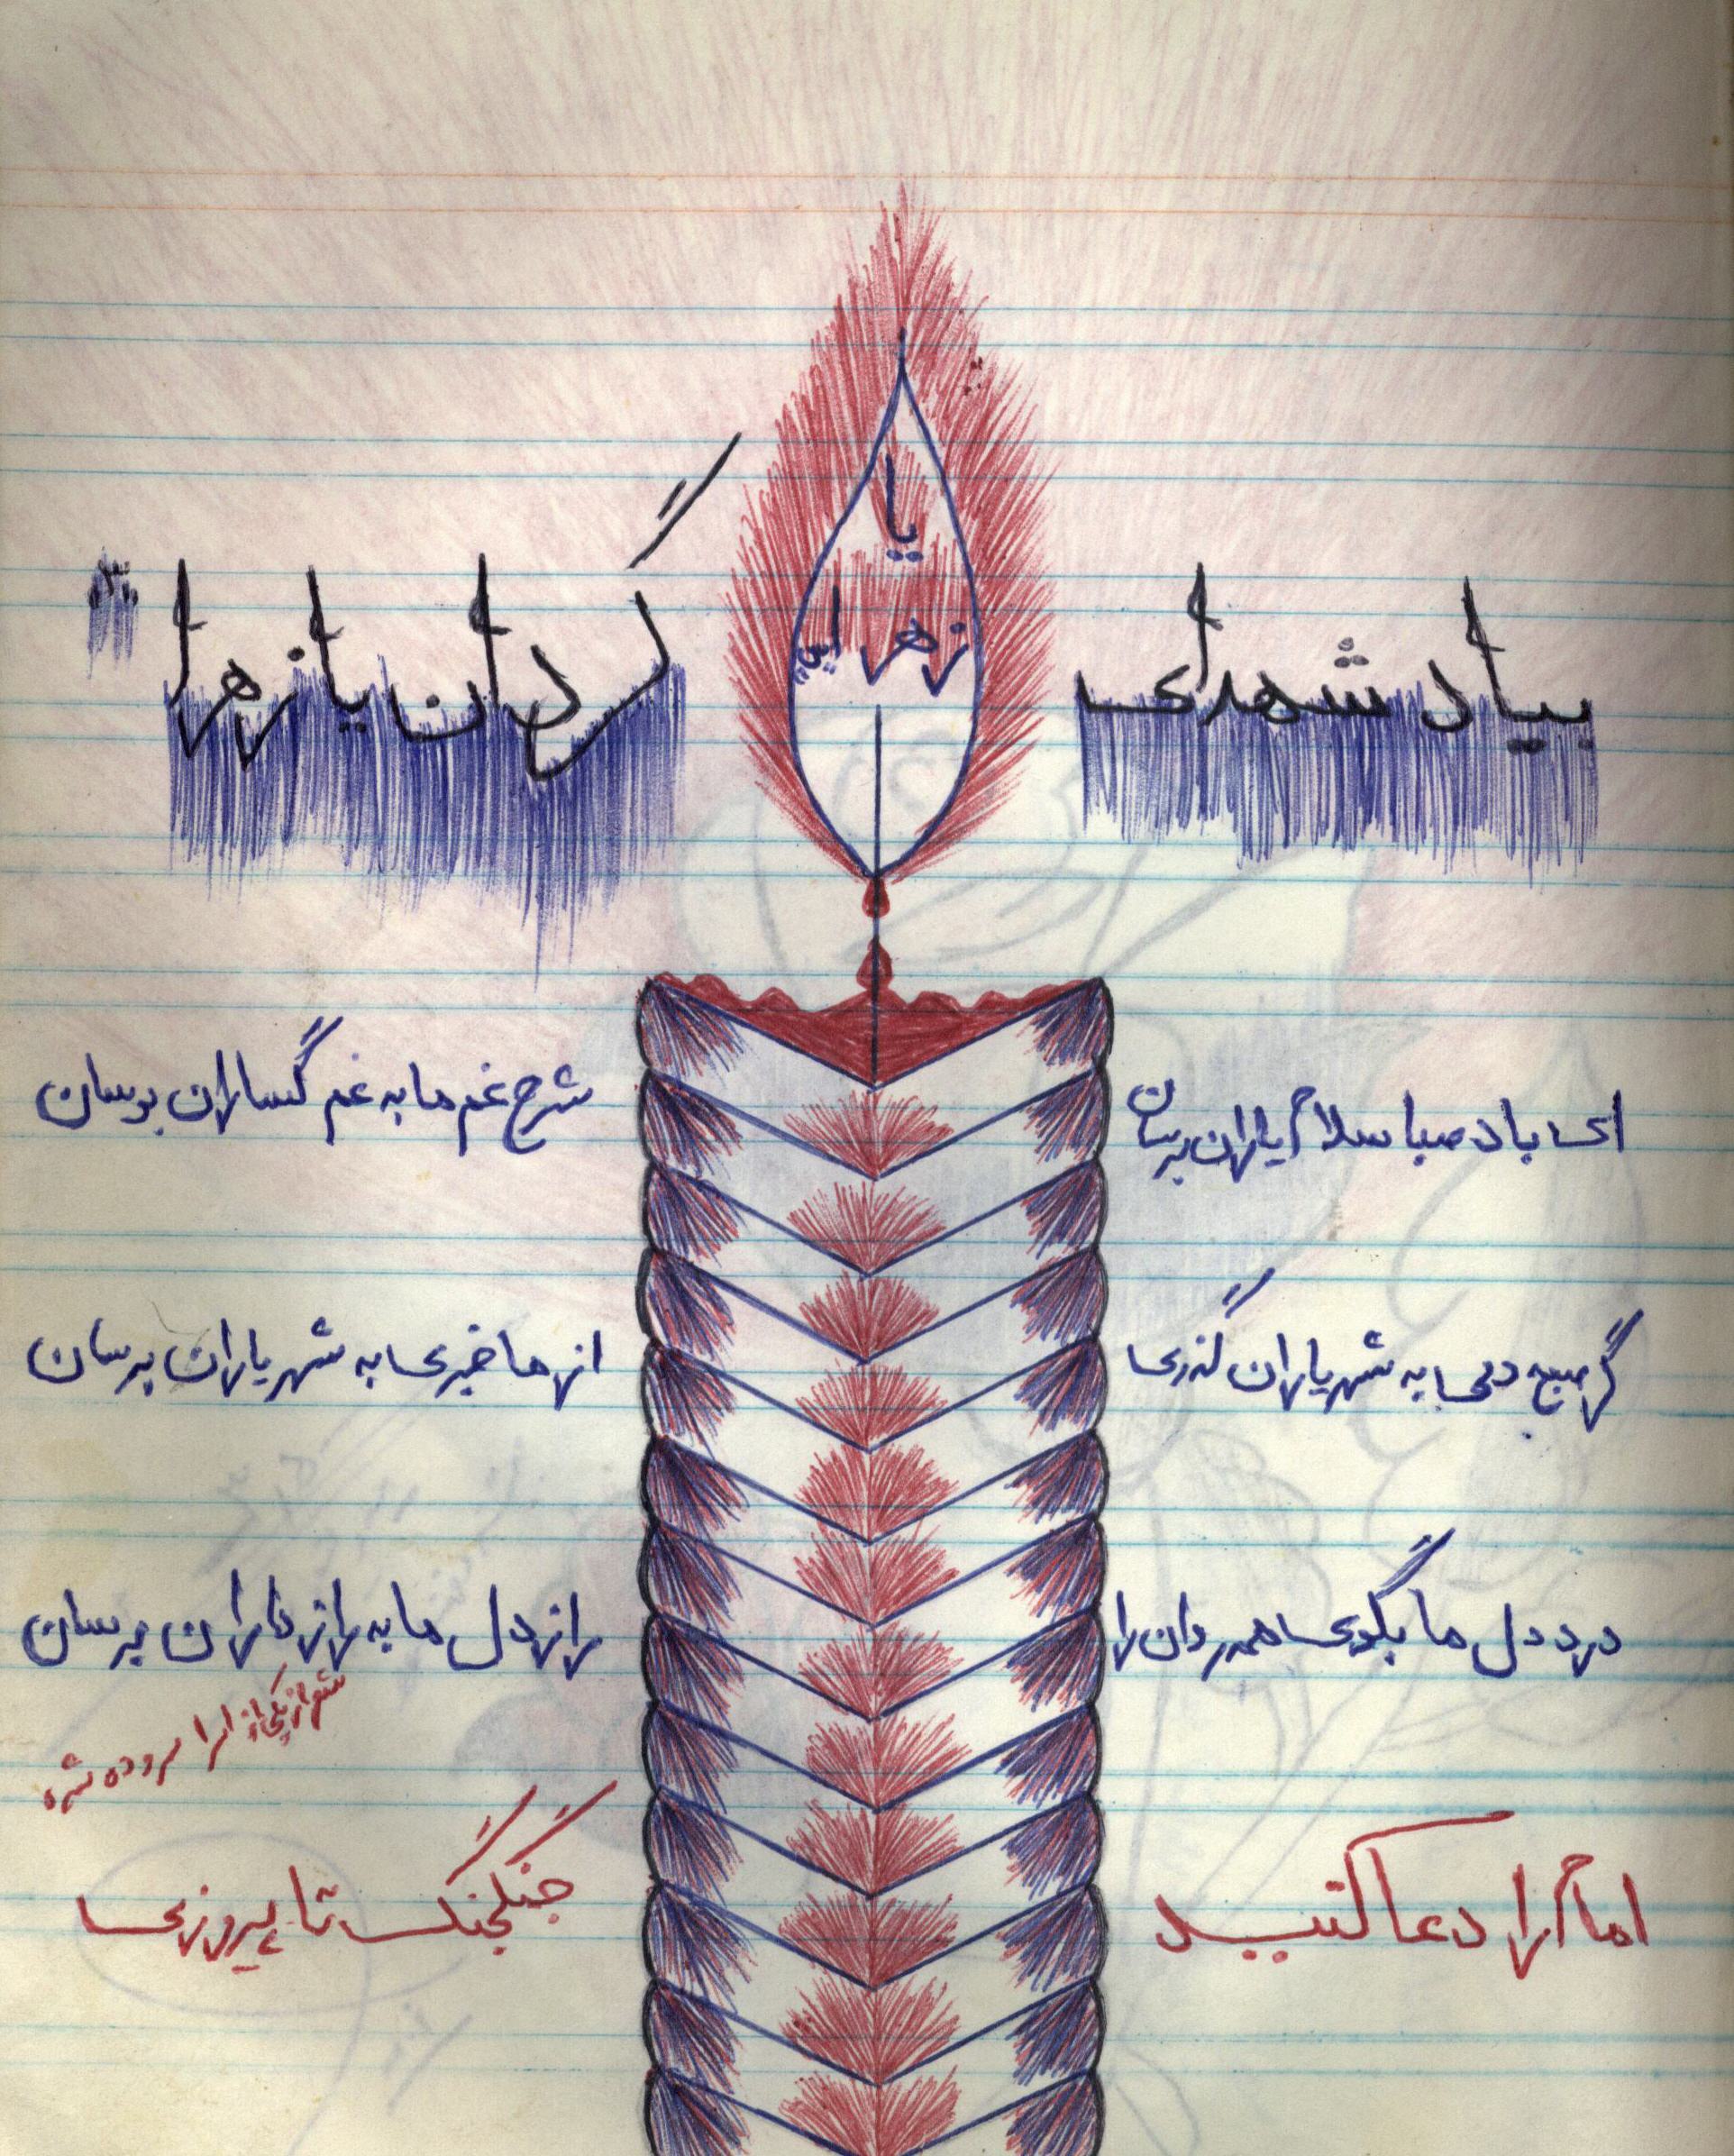 یا
زهرا
بیاد شهدای گردان یازهرا
ای باد صبا سلام یاران برسان
شرح غم ما به غم گساران برسان
گر صبح دمی به شهر یاران گذری
از ما خبری به شهر یاران برسان
درد دل ما بگوی همدردان را
راز دل ما به راز داران برسان
شعر از یکی از اسرا سروده شده
امام را دعا کنید
جنگ جنگ تا پیروزی